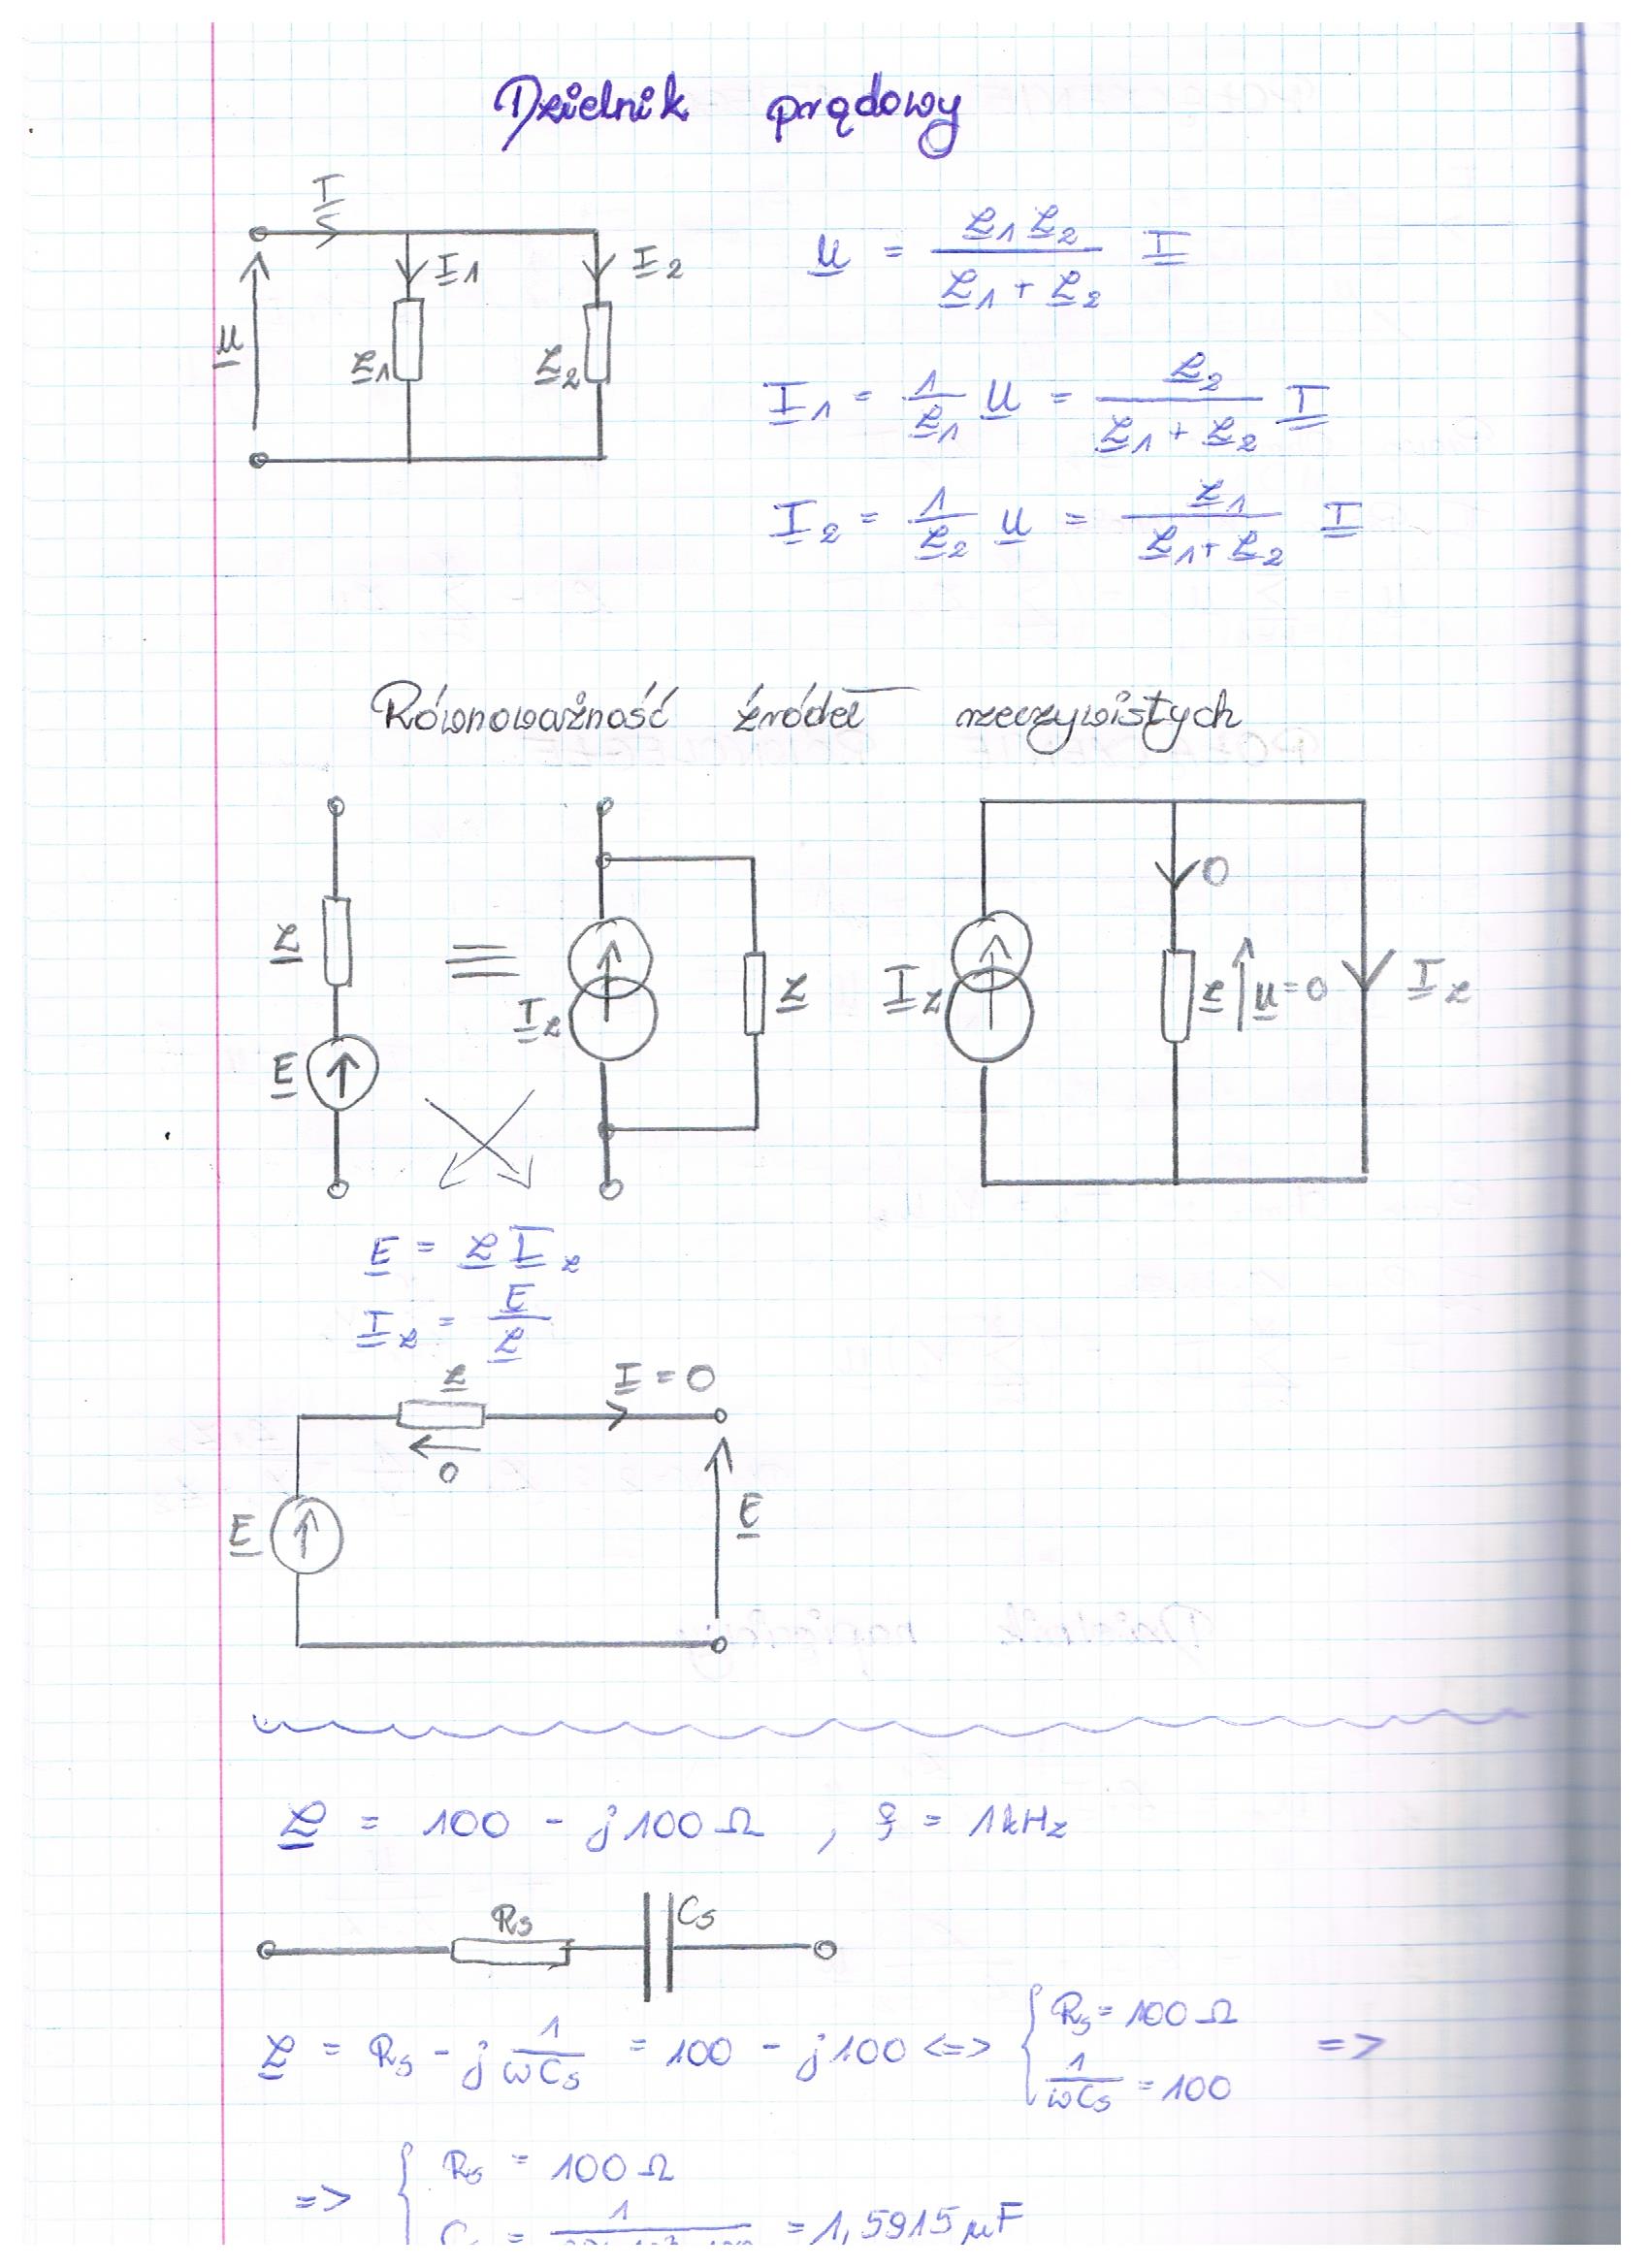 Dzielnik prądowy
I
I1 I2
U Z1 Z2
U = Z1 Z2 / (Z1 + Z2) I
I1 = 1/Z1 U = Z2 / (Z1 + Z2) I
I2 = 1/Z2 U = Z1 / (Z1 + Z2) I
Równoważność źródeł rzeczywistych
Z ≡ Iz Z
E
0
Iz Z U=0 Iz
E = Z Iz
Iz = E/Z
Z I = 0
0
E E
Z = 100 - j100Ω , f = 1kHz
Rs Cs
Z = Rs - j 1/ωCs = 100 - j100 <=> { Rs = 100Ω =>
1/ωCs = 100
=> { Rs = 100Ω
= 1 = 1,5915μF